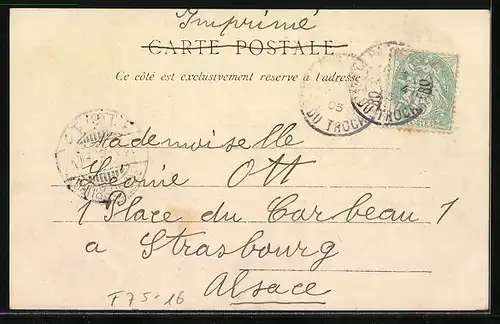 Imprimé
CARTE POSTALE
Ce côté est exclusivement reservé à l'adresse
05
DU TROCA
DU TROCA
Mademoiselle
Léonie Ott
1 Place du Corbeau 1
a Strasbourg
Alsace
T75-16